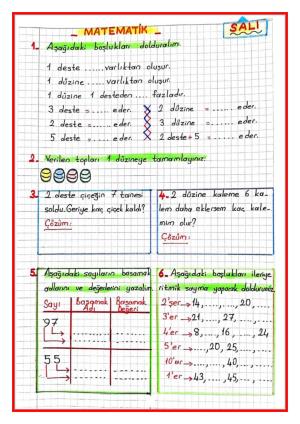 MATEMATİK
SALI
1. Aşağıdaki boşlukları dolduralım.
1 deste ......varlıktan oluşur.
1 düzine ......varlıktan oluşur.
1 düzine 1 desteden .... fazladır.
3 deste = ...... eder.
2 deste = ...... eder.
5 deste = ...... eder.
2 düzine = ...... eder.
3 düzine = ...... eder.
2 deste+5 = ...... eder.
2. Verilen topları 1 düzineye tamamlayınız.
3. 2 deste çiçeğin 7 tanesi
soldu.Geriye kaç çiçek kaldı?
Çözüm:
4. 2 düzine kaleme 6 ka-
lem daha eklersem kaç kale-
mim olur?
Çözüm:
5. Aşağıdaki sayıların basamak
adlarını ve değerlerini yazalım.
Sayı Basamak Adı Basamak Değeri
97
55
6. Aşağıdaki boşlukları ileriye
ritmik sayma yaparak doldurunuz.
2'şer→14,......,......,20,......
3'er→21,......,27,......,......
4'er→8,......,16,......,24
5'er→......,20,25,......
10'er→......,......,40,......
1'er→43,......,45,......